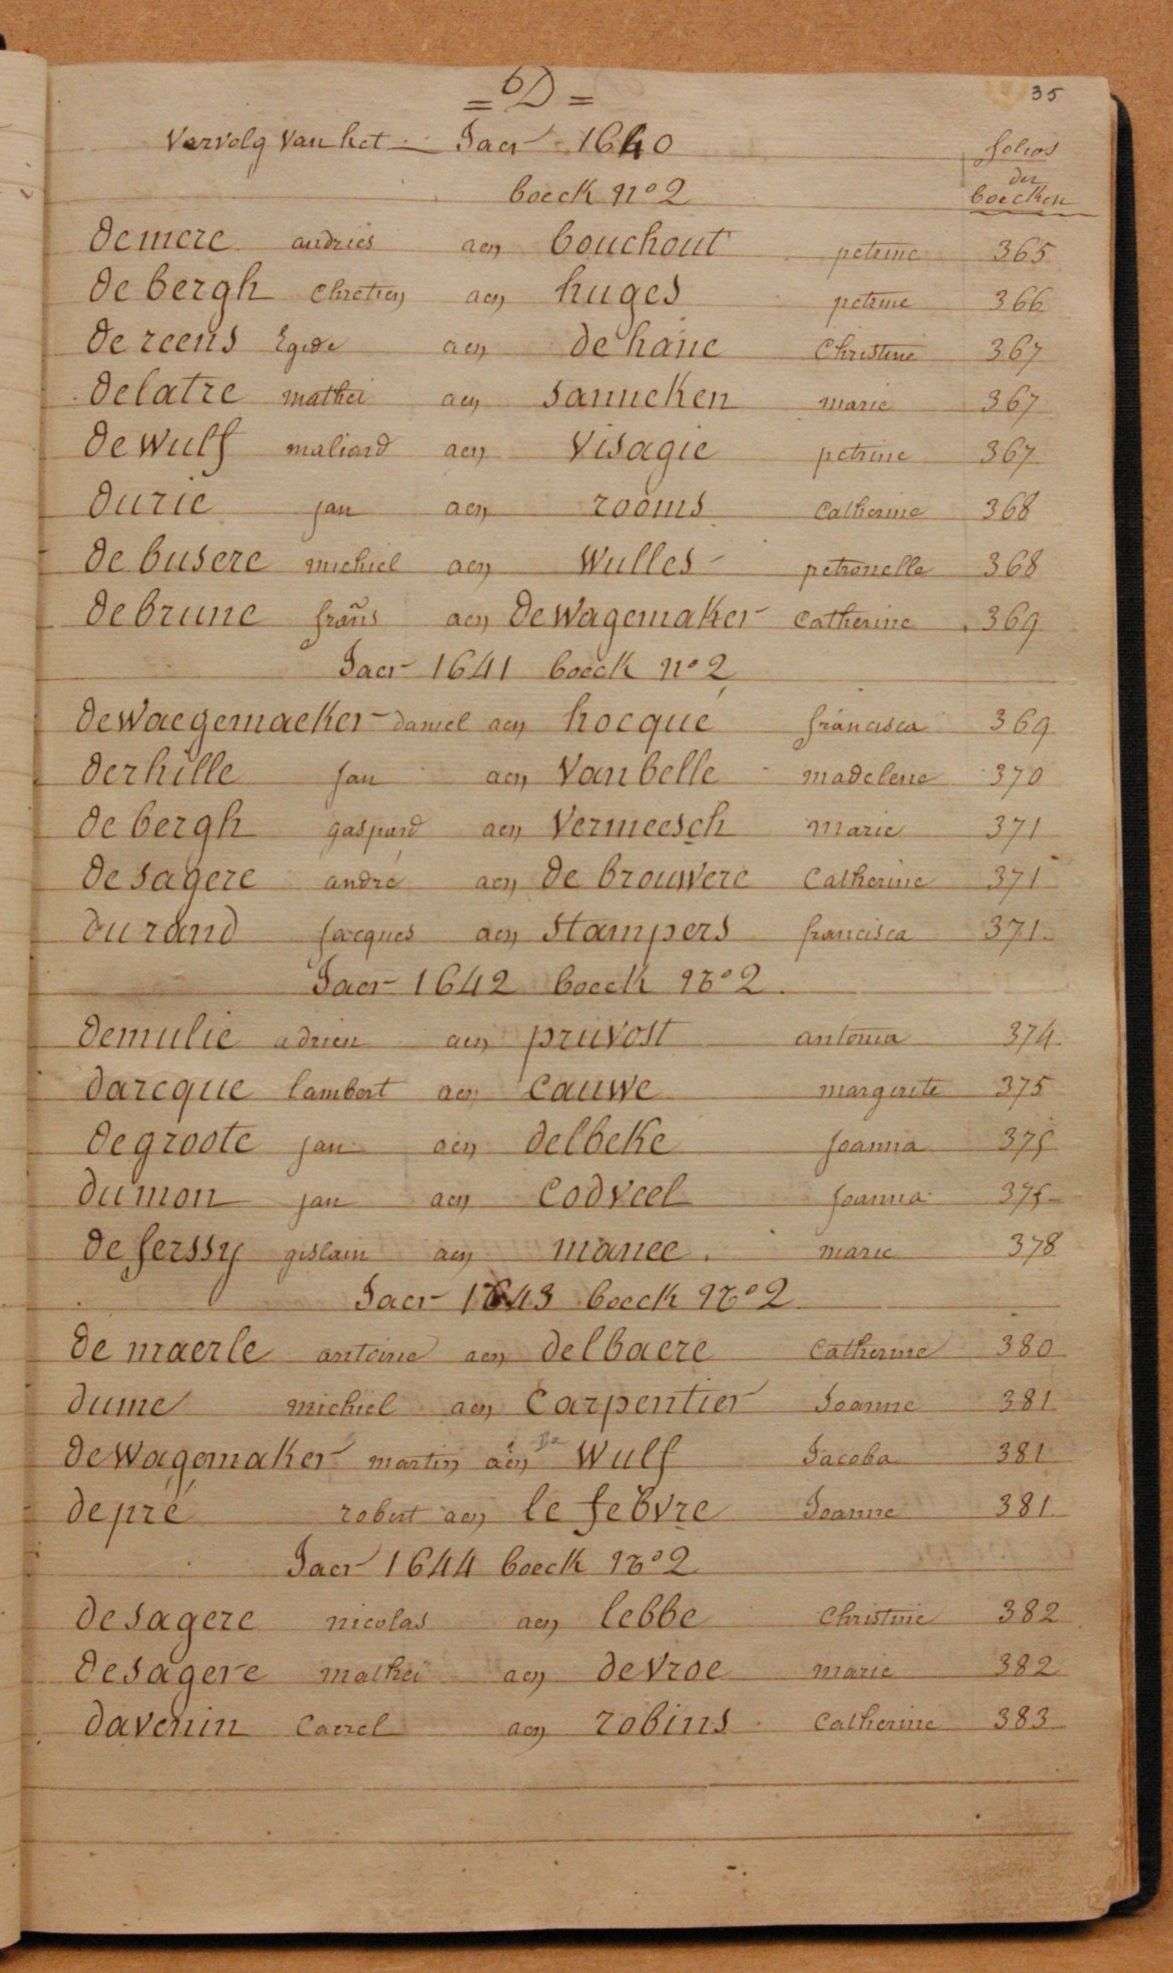 = 6D =
35
Vervolg Van het Jaer 1640
folios
der
boecken
boeck nº 2
demere andries aen bouchout petrine 365
de bergh Chretien aen huges petrine 366
de reens Egide aen de hane Christine 367
delatre mathei aen sanneken marie 367
de wulf maliard aen visagie petrine 367
durie jan aen rooms Catherine 368
de busere michiel aen wulles petronelle 368
debrune frañs aen de wagemaker Catherine 369
Jaer 1641 boeck nº 2
dewaegemaeker daniel aen hocqué francisca 369
derhille jan aen vanbelle madelene 370
de bergh gaspard aen vermeesch marie 371
de sagere andré aen de brouwere Catherine 371
durand jacques aen stampers francisca 371
Jaer 1642 boeck nº 2
demulie adrien aen pruvost antonia 374
darcque lambert aen cauwe margerite 375
degroote jan aen delbeke joanna 375
dumon jan aen codveel joanna 375
de ferssy gislain aen manee marie 378
Jaer 1643 boeck nº 2
de maerle antoine aen delbaere Catherine 380
dume michiel aen Carpentier Joanne 381
dewagemaker martin aen De wulf Jacoba 381
depré robert aen le febvre Joanne 381
Jaer 1644 boeck nº 2
desagere nicolas aen lebbe Christine 382
desagere mathei aen devroe marie 382
davenin Carel aen robins Catherine 383